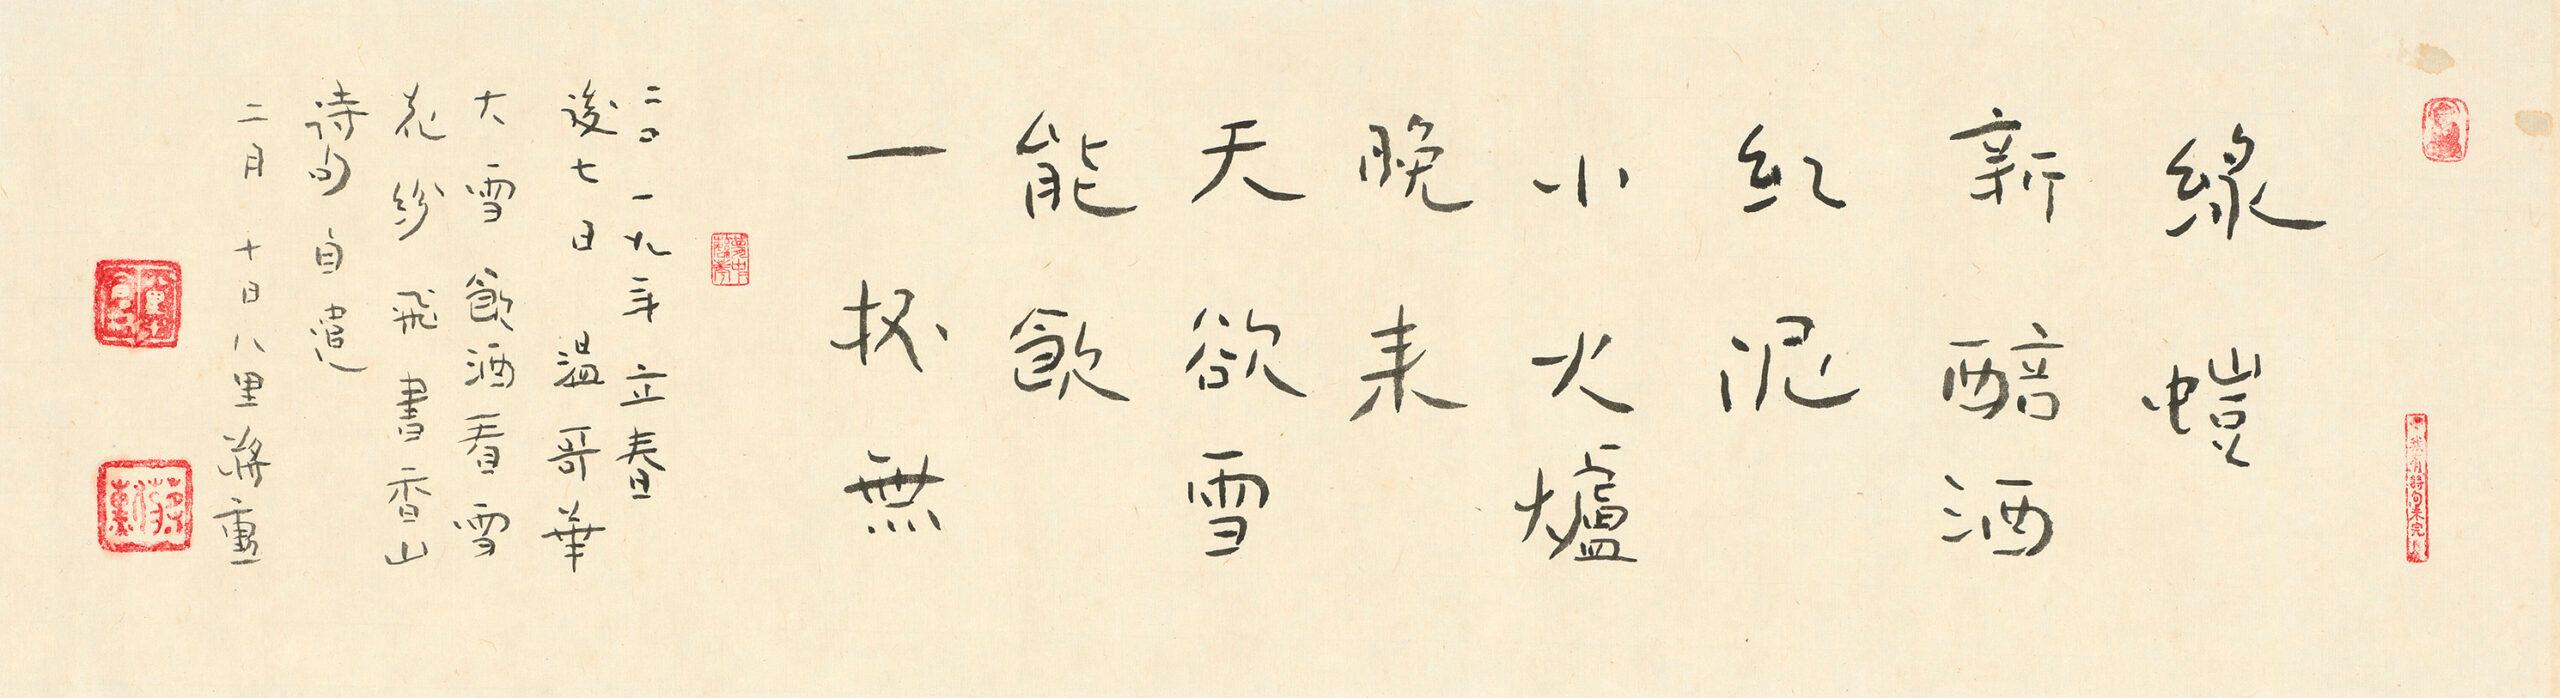 綠螘
新醅酒
紅泥
小火爐
晚來
天欲雪
能飲
一杯無
二〇一九年立春
後七日 溫哥華
大雪 飲酒看雪
花紛飛 書香山
詩句自遣
二月十日八里蔣勳
蔣勳